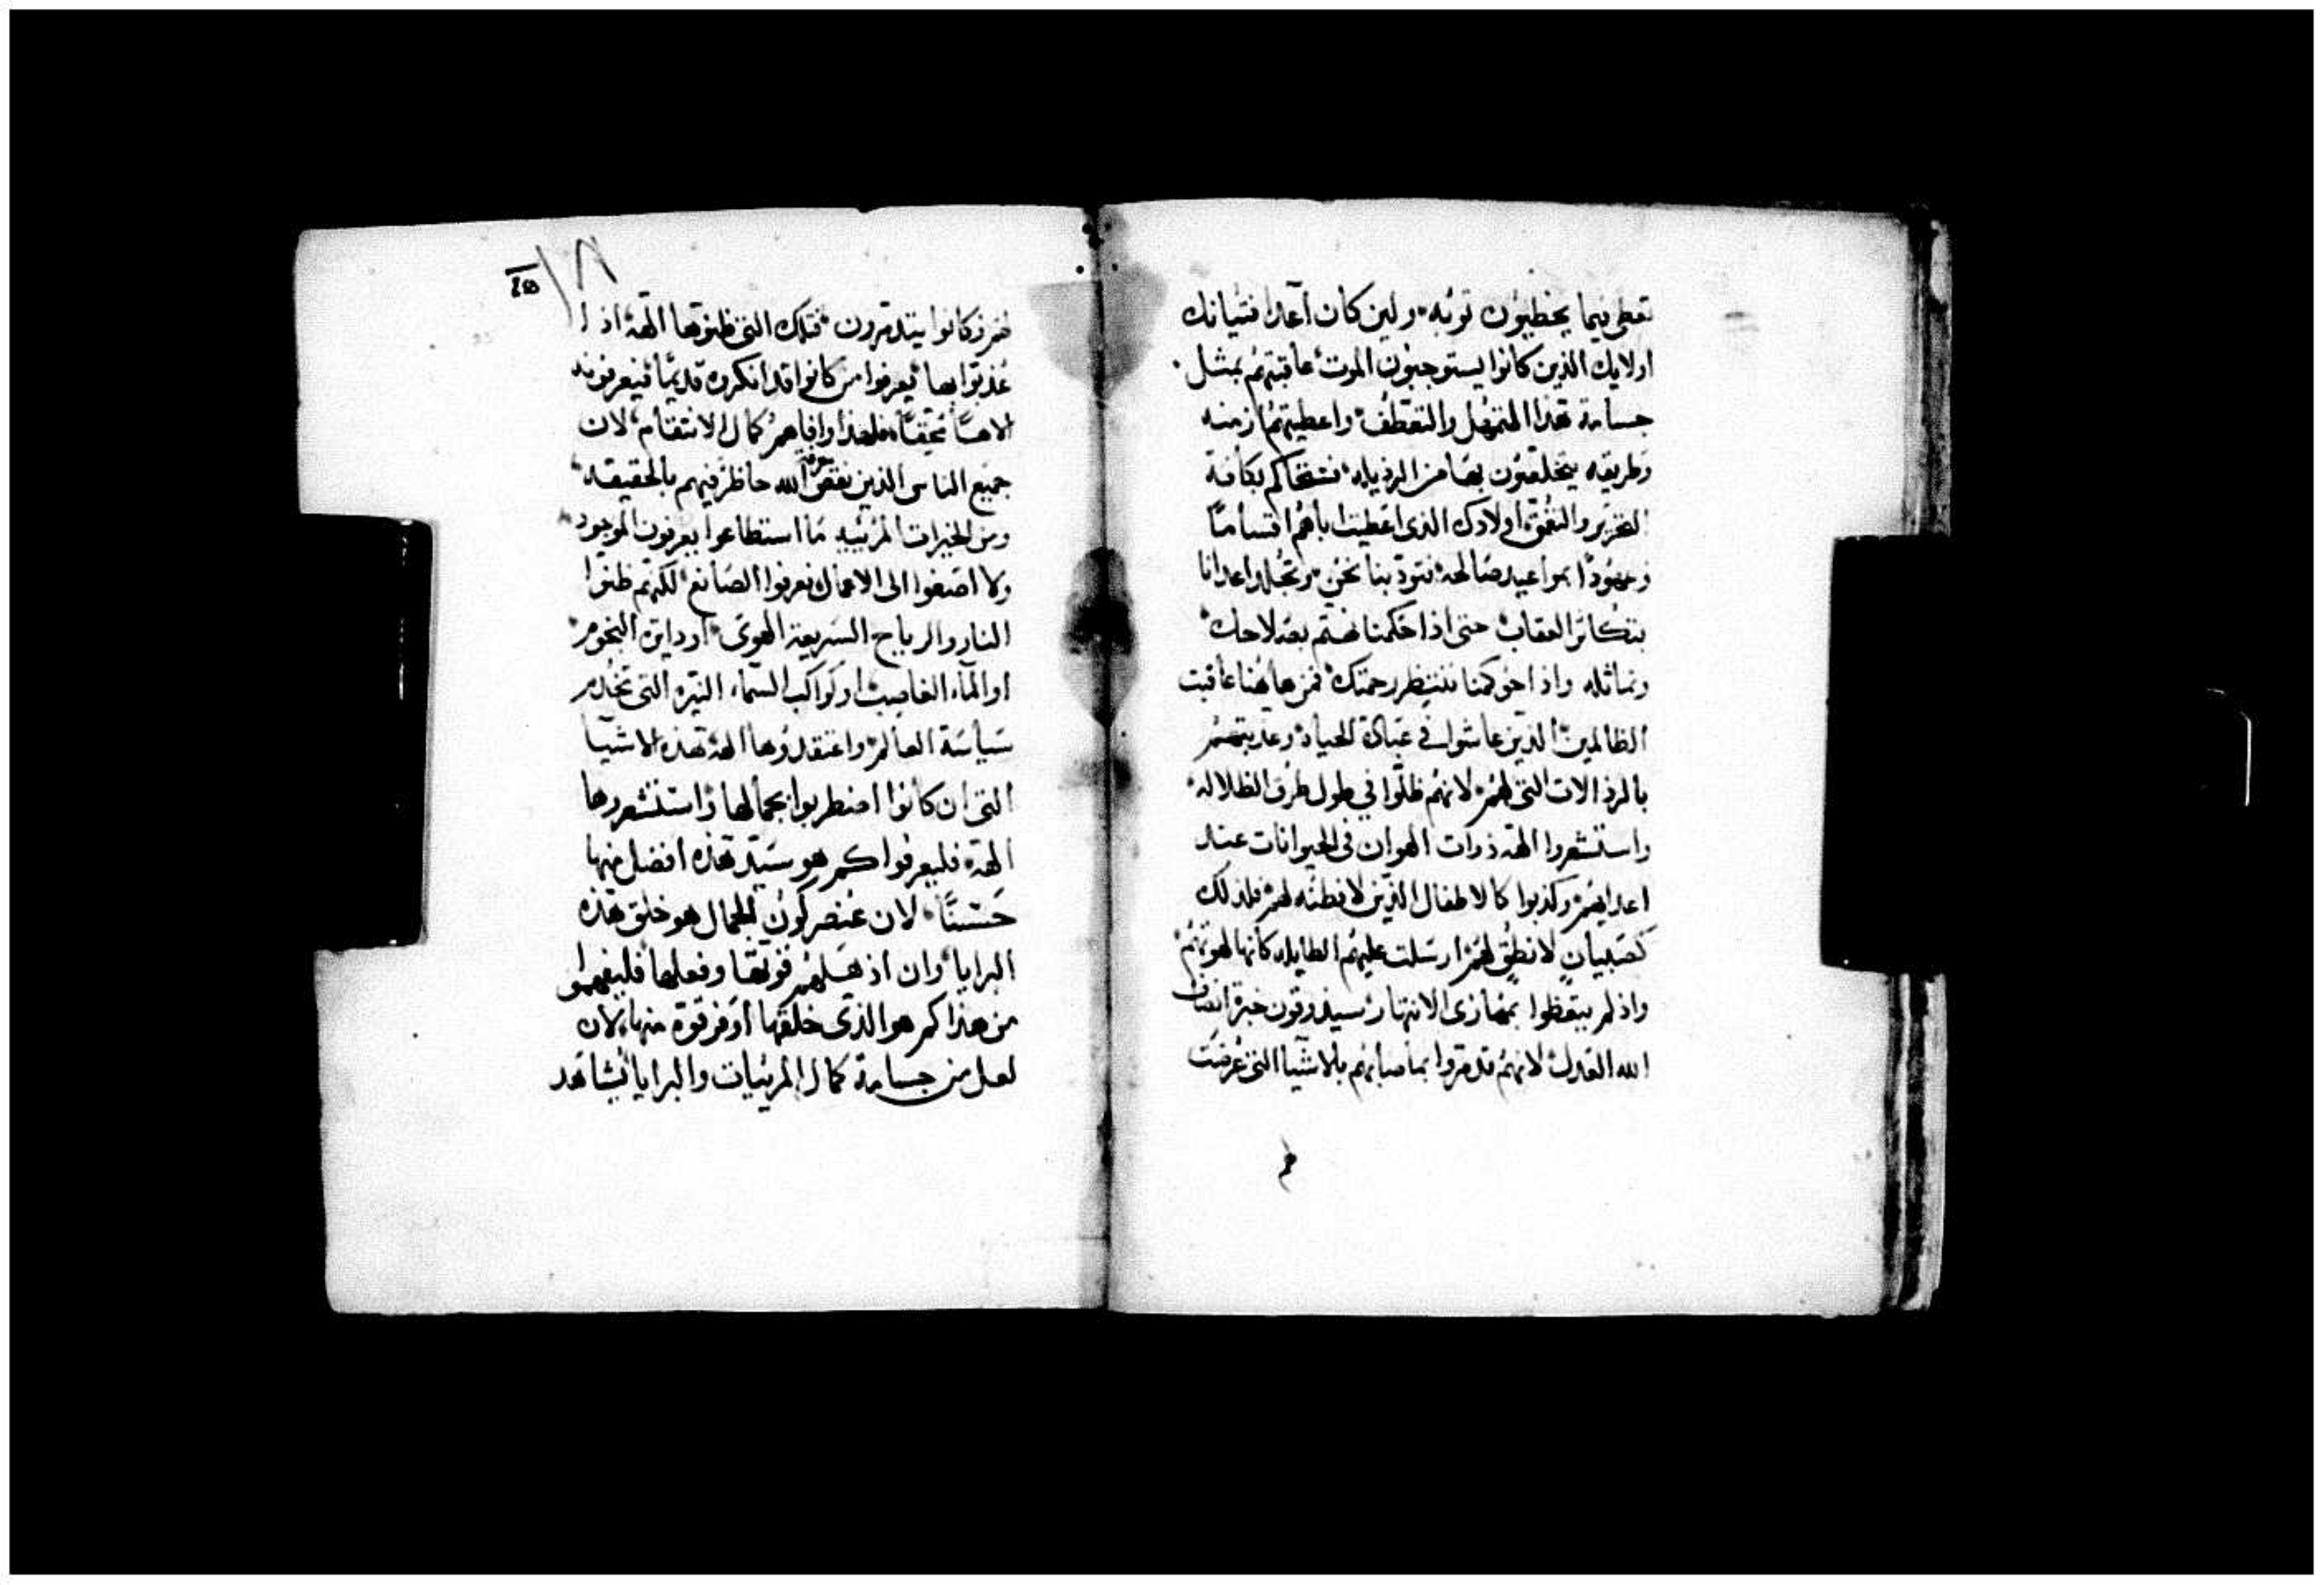 تعطى فيما يخطيون توبه ولين كان آعدا فتيانك
اولايك الذين كانوا يستوجبون الموت عاقبتهم بمثل
جسامة هذا التمهل والتعطف واعطيتهم ازمنه
وطريقه يتخلصون بها من الرذيله بكافة
التحرير اولادك الذى اعطيت اباهم اقساما
وعهودا بمواعيد صالحه فتودبنا نحن وتجلد اعدانا
بتكاثر العقاب حتى اذا حكمنا نهتم بصلاحك
ونماثله واذا حوكمنا ننتظر رحمتك فمن هاهنا عاقبت
الظالمين الذين عاشوا فى غباوة الحياه وعذبتهم
بالرذالات التى لهم لانهم ظلوا فى طول طرق الظلاله
واستشعروا الهة ذوات الهوان فى الحيوانات عند
اعدايهم وكذبوا كالاطفال الذين لا فطنه لهم فلذلك
كصبيان لا نطق لهم ارسلت عليهم الطايله كانها لهوتهم
واذ لم يتعظوا بمهازى الانتهار سيذوقون خبرة انصاف
الله العدل لانهم قد بما اصابهم بالاشيا التى عرضت
لهم
لهم وكانوا يتدمرون فتلك التى ظنوها الهة اذ
عذبوا بها يعرفوا من كانوا قد انكروه قديما فيعرفونه
الاها محقا فلهذا وافاهم كمال الانتقام لان
جميع الناس الذين نقص معرفة الله حاظر فيهم بالحقيقه
ومن الخيرات المرئييه ما استطاعوا يعرفون الموجود
ولا اصغوا الى الاعمال فعرفوا الصانع لكنهم ظنوا
النار والرياح السريعة الهوى او دايرة النجوم
او الماء الغاصب او كواكب السماء النيره التى تخدم
سياسة العالم واعتقدوها الهة هذه الاشيا
التى ان كانوا اضطربوا بجمالها واستشعروها
الهة فليعرفوا كم هو سيد هذه افضل منها
حسنا لان عنصر كون الجمال هو خلق هذه
البرايا وان اذهلهم قوتها وفعلها فليفهموا
من هذا كم هو الذى خلقها اوفر قوة منها لان
لعل من جسامة كمال المرئيات والبرايا يشاهد